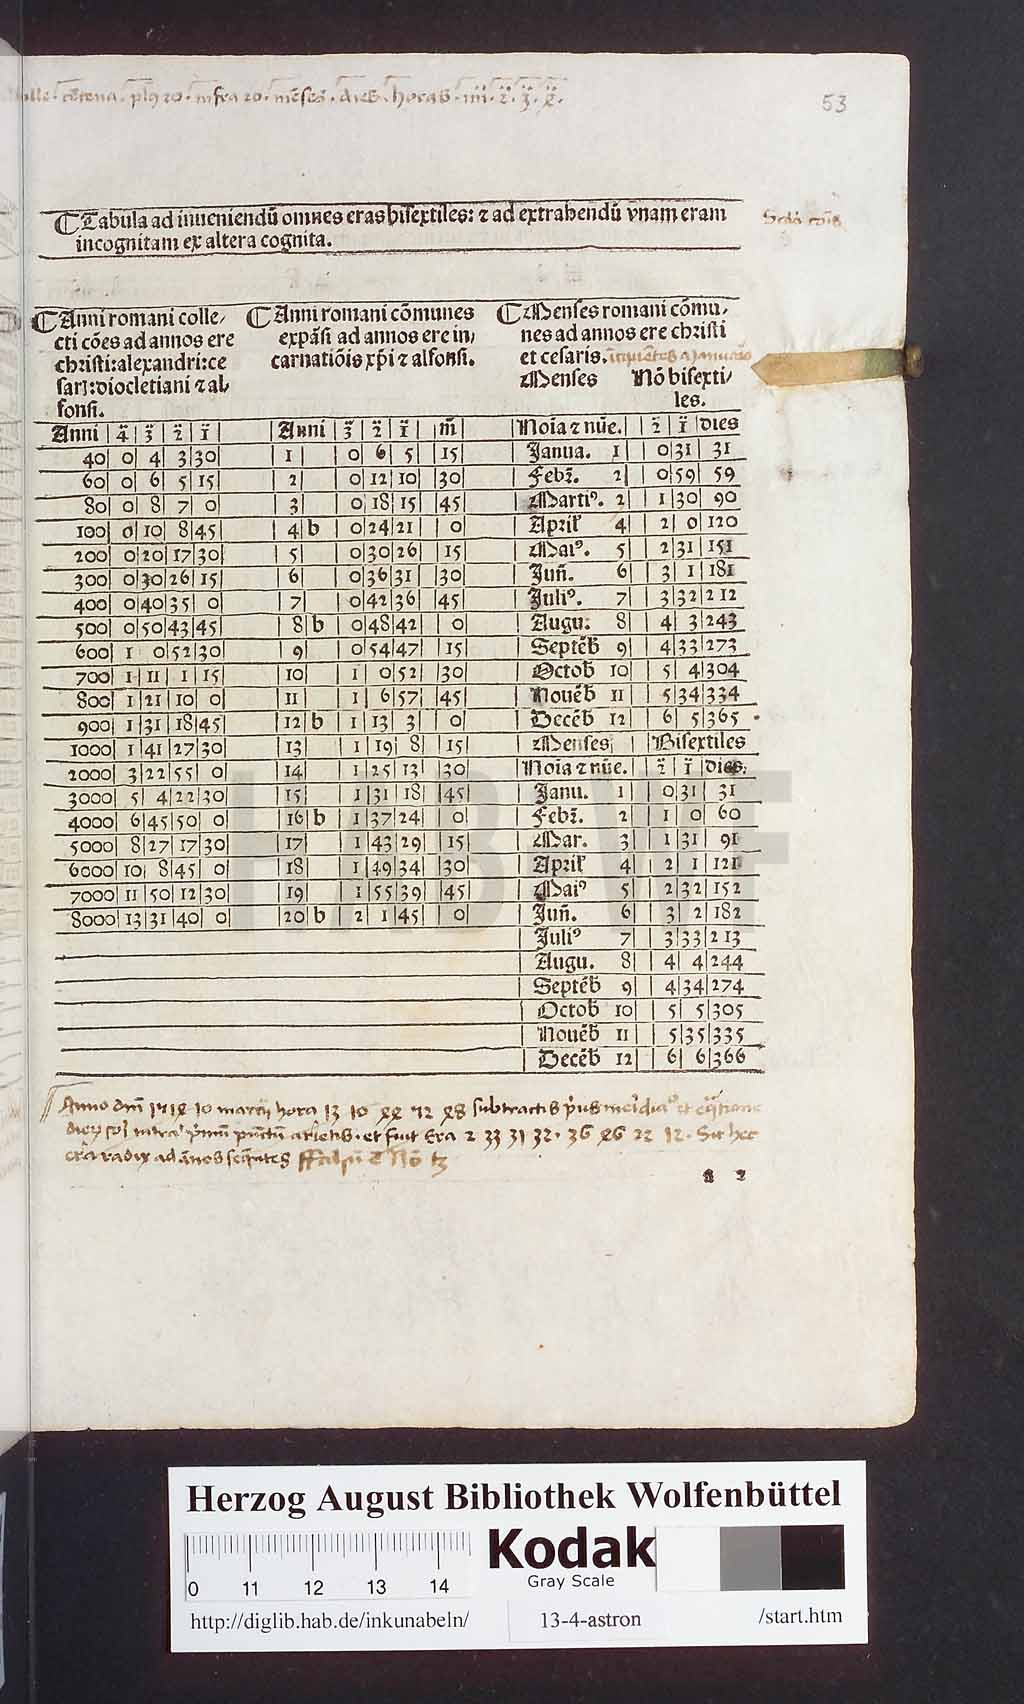 53
Tabula ad inueniendū omnes eras bisextiles: ⁊ ad extrahendū vnam eram
incognitam ex altera cognita.
Anni romani colle-
cti cōes ad annos ere
christi: alexandri: ce
sar]: diocletiani ⁊ al-
fonsi.
Anni | 4̈ | 3̈ | 2̈ | 1̈
40 | 0 | 4 | 3 | 30
60 | 0 | 6 | 5 | 15
80 | 0 | 8 | 7 | 0
100 | 0 | 10 | 8 | 45
200 | 0 | 20 | 17 | 30
300 | 0 | 30 | 26 | 15
400 | 0 | 40 | 35 | 0
500 | 0 | 50 | 43 | 45
600 | 1 | 0 | 52 | 30
700 | 1 | 11 | 1 | 15
800 | 1 | 21 | 10 | 0
900 | 1 | 31 | 18 | 45
1000 | 1 | 41 | 27 | 30
2000 | 3 | 22 | 55 | 0
3000 | 5 | 4 | 22 | 30
4000 | 6 | 45 | 50 | 0
5000 | 8 | 27 | 17 | 30
6000 | 10 | 8 | 45 | 0
7000 | 11 | 50 | 12 | 30
8000 | 13 | 31 | 40 | 0
Anni romani cōmunes
expāsi ad annos ere in-
carnatiōis xp̄i ⁊ alfonsi.
Anni | 3̈ | 2̈ | 1̈ | m̄
1 | 0 | 6 | 5 | 15
2 | 0 | 12 | 10 | 30
3 | 0 | 18 | 15 | 45
4 b | 0 | 24 | 21 | 0
5 | 0 | 30 | 26 | 15
6 | 0 | 36 | 31 | 30
7 | 0 | 42 | 36 | 45
8 b | 0 | 48 | 42 | 0
9 | 0 | 54 | 47 | 15
10 | 1 | 0 | 52 | 30
11 | 1 | 6 | 57 | 45
12 b | 1 | 13 | 3 | 0
13 | 1 | 19 | 8 | 15
14 | 1 | 25 | 13 | 30
15 | 1 | 31 | 18 | 45
16 b | 1 | 37 | 24 | 0
17 | 1 | 43 | 29 | 15
18 | 1 | 49 | 34 | 30
19 | 1 | 55 | 39 | 45
20 b | 2 | 1 | 45 | 0
Menses romani cōmu-
nes ad annos ere christi
et cesaris.
Menses Nō bisexti-
les.
Noīa ⁊ nūe. | 2̈ | 1̈ | dies
Janua. 1 | 0 | 31 | 31
Febr̄. 2 | 0 | 59 | 59
Martiꝰ. 2 | 1 | 30 | 90
April' 4 | 2 | 0 | 120
Maiꝰ. 5 | 2 | 31 | 151
Juñ. 6 | 3 | 1 | 181
Juliꝰ. 7 | 3 | 32 | 212
Augu: 8 | 4 | 3 | 243
Septēb 9 | 4 | 33 | 273
Octob 10 | 5 | 4 | 304
Nouēb 11 | 5 | 34 | 334
Decēb 12 | 6 | 5 | 365
Menses | Bisextiles
Noīa ⁊ nūe. | 2̈ | 1̈ | dies:
Janu. 1 | 0 | 31 | 31
Febr̄. 2 | 1 | 0 | 60
Mar. 3 | 1 | 31 | 91
April' 4 | 2 | 1 | 121
Maiꝰ 5 | 2 | 32 | 152
Juñ. 6 | 3 | 2 | 182
Juliꝰ 7 | 3 | 33 | 213
Augu. 8 | 4 | 4 | 244
Septēb 9 | 4 | 34 | 274
Octob 10 | 5 | 5 | 305
Nouēb 11 | 5 | 35 | 335
Decēb 12 | 6 | 6 | 366
a 2
HAB WF
Herzog August Bibliothek Wolfenbüttel
0 11 12 13 14
Kodak
Gray Scale
http://diglib.hab.de/inkunabeln/
13-4-astron
/start.htm